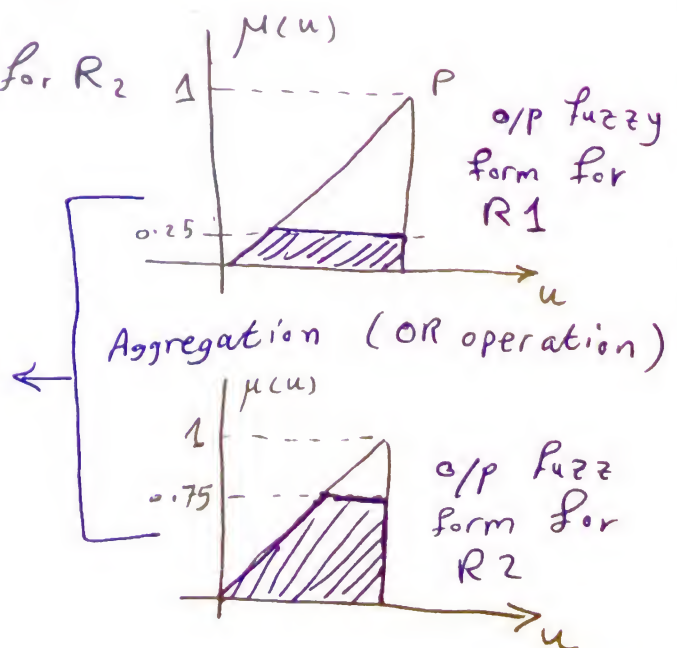 for R2
μ(u)
1
P
o/p fuzzy
form for
R1
0.25
u
Aggregation (OR operation)
μ(u)
1
0.75
o/p fuzz
form for
R2
u